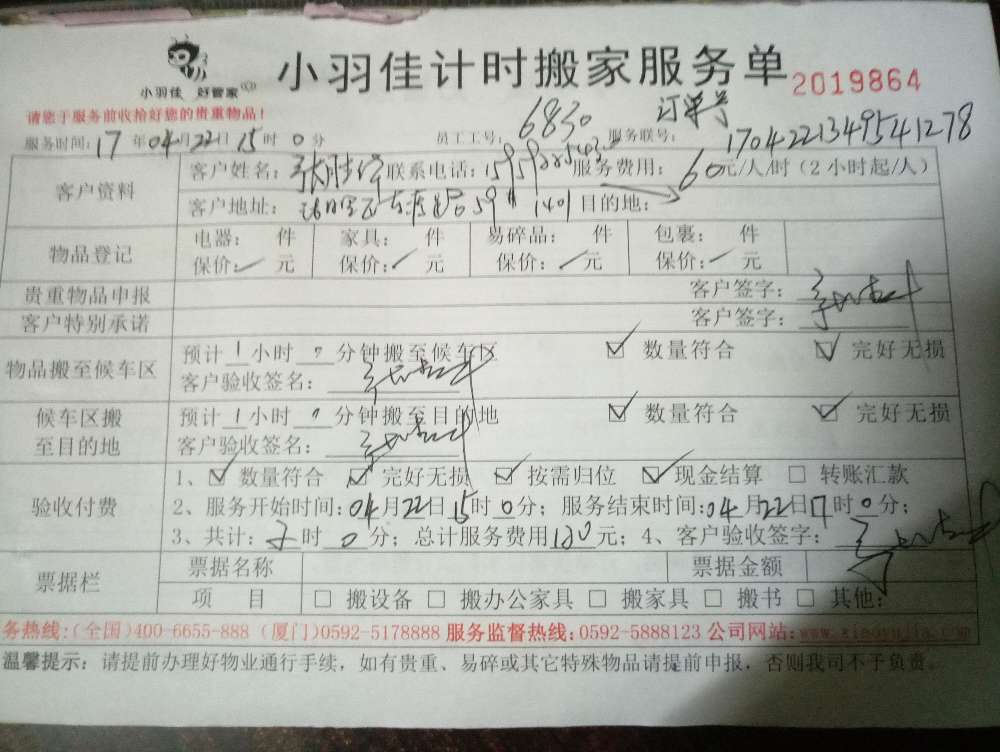 小羽佳 好管家
小羽佳计时搬家服务单 2019864
请您于服务前收拾好您的贵重物品!
订单号
服务时间: 17 年 04 月 22 日 15 时 0 分 员工工号: 6830 服务联号: 1704221349541278
客户资料 客户姓名: 联系电话: 服务费用: 60 元/人/时 (2 小时起/人)
客户地址: 1401 目的地:
物品登记 电器: 件 家具: 件 易碎品: 件 包裹: 件
保价: 元 保价: 元 保价: 元 保价: 元
贵重物品申报 客户签字:
客户特别承诺 客户签字:
物品搬至候车区 预计 1 小时 分钟搬至候车区 ☑ 数量符合 ☑ 完好无损
客户验收签名:
候车区搬至目的地 预计 1 小时 分钟搬至目的地 ☑ 数量符合 ☑ 完好无损
客户验收签名:
验收付费 1、☑ 数量符合 ☑ 完好无损 ☑ 按需归位 ☑ 现金结算 □ 转账汇款
2、服务开始时间: 04 月 22 日 15 时 0 分; 服务结束时间: 04 月 22 日 17 时 0 分;
3、共计: 2 时 0 分; 总计服务费用 120 元; 4、客户验收签字:
票据栏 票据名称 票据金额
项 目 □ 搬设备 □ 搬办公家具 □ 搬家具 □ 搬书 □ 其他:
务热线:(全国)400-6655-888 (厦门)0592-5178888 服务监督热线:0592-5888123 公司网站:www.xiaoyujia.com
温馨提示: 请提前办理好物业通行手续, 如有贵重、易碎或其它特殊物品请提前申报, 否则我司不予负责。